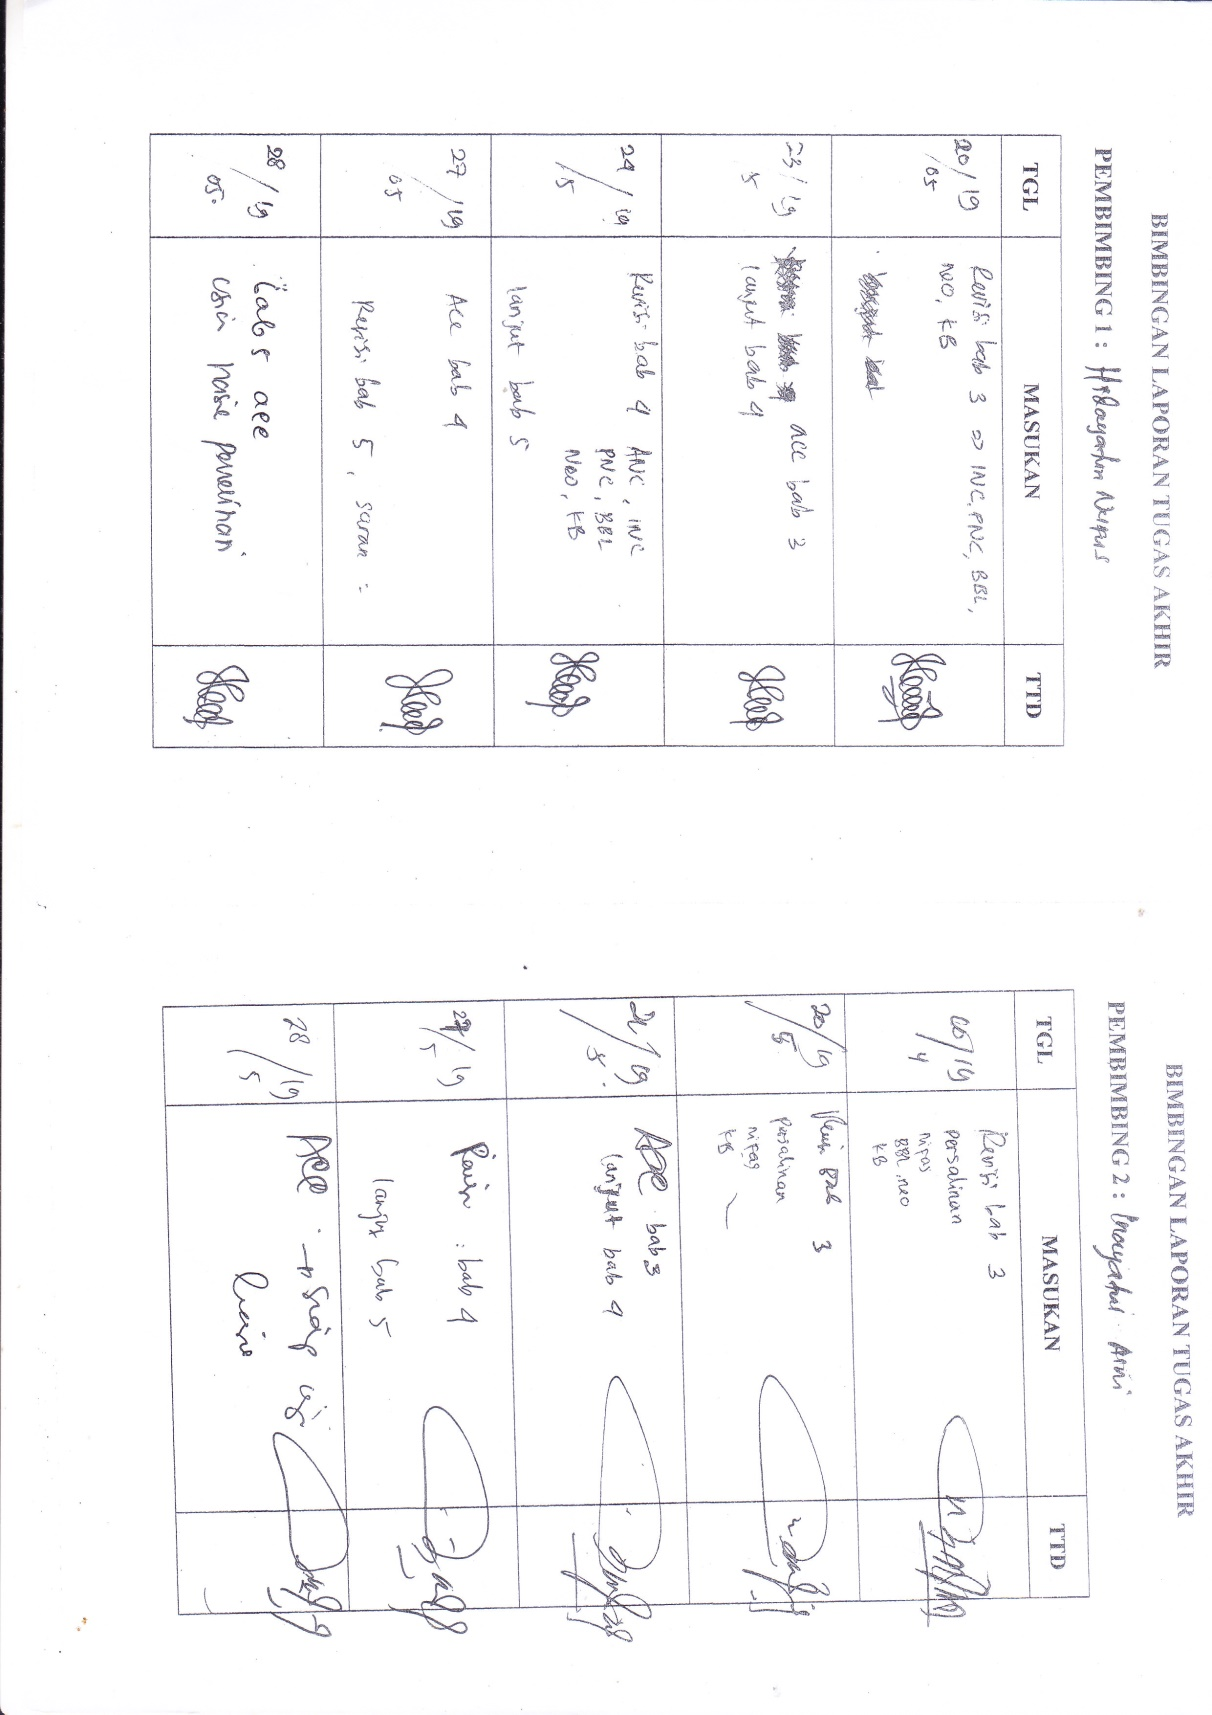 BIMBINGAN LAPORAN TUGAS AKHIR
PEMBIMBING 1 :
TGL MASUKAN TTD
20/19
05
Revisi bab 3 => INC, PNC, BBL,
NEO, KB
23/19
5
acc bab 3
lanjut bab 4
24/19
5
Revisi bab 4 ANC, INC
PNC, BBL
Neo, KB
lanjut bab 5
27/19
05
Acc bab 4
Revisi bab 5, saran :
28/19
05.
bab 5 acc
BIMBINGAN LAPORAN TUGAS AKHIR
PEMBIMBING 2 :
TGL MASUKAN TTD
/19
4
Revisi bab 3
persalinan
nifas
BBL, neo
KB
20/19
5
Revisi Bab 3
persalinan
nifas
KB
/19
5
Acc bab 3
lanjut bab 4
/19
5
Revisi : bab 4
lanjut bab 5
28/19
5
Acc